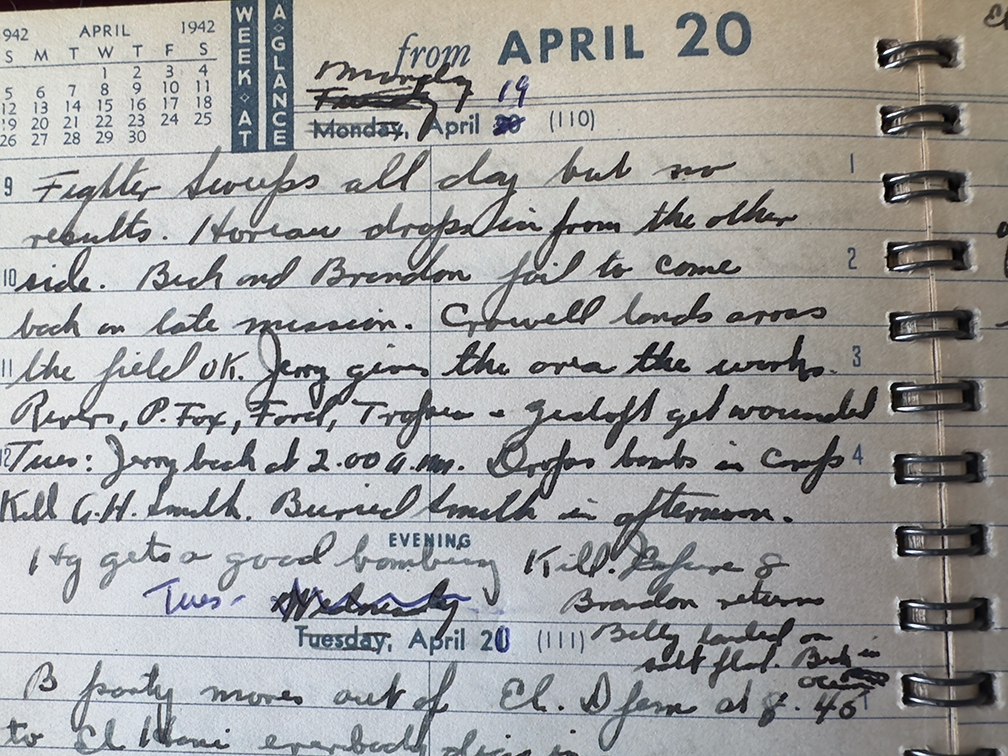 942 APRIL 1942
S M T W T F S
1 2 3 4
5 6 7 8 9 10 11
12 13 14 15 16 17 18
19 20 21 22 23 24 25
26 27 28 29 30
WEEK AT
A GLANCE
from APRIL 20
Monday
19
Monday, April 20 (110)
9 Fighter Sweeps all day but no 1
results. drops in from the other
10 side. Beck and Brandon fail to come 2
back on late mission. Crowell lands across
11 the field OK. Jerry gives the area the works. 3
Rivers, P. Fox, Ford, & get wounded
12 Tues: Jerry back at 2.00 a.m. Drops bombs in camp 4
Kill G.H. Smith. Buried Smith in afternoon.
EVENING
Hq gets a good bombing 1 Kill. &
Tues- Wednesday Brandon returns
Tuesday, April 20 (111) Belly landed on
salt flat. Beck in
ocean
B party moves out of El. Djem at 8.45
to El Hani everybody digs in